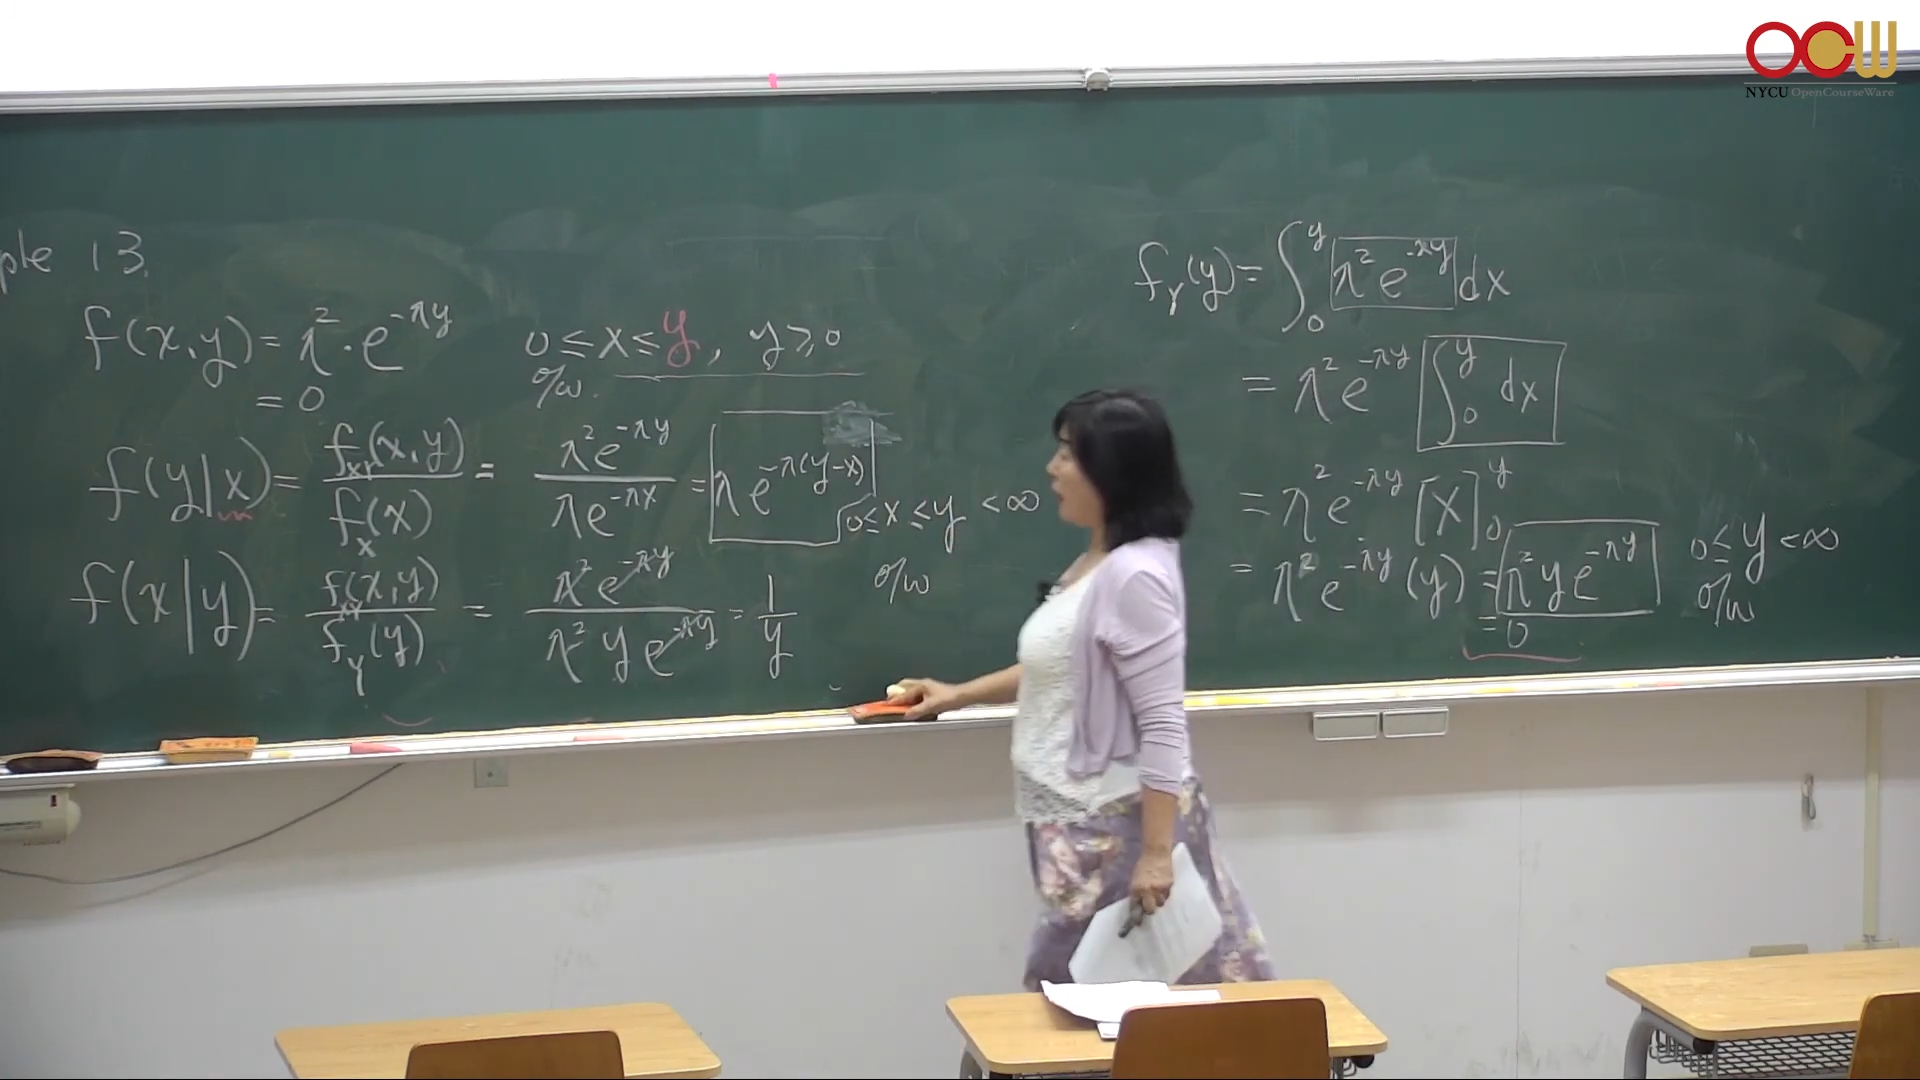 OCW
NYCU OpenCourseWare
ple 13.
f(x,y) = λ² · e^{-λy}    0 ≤ x ≤ y, y ≥ 0
= 0    o/w.
f(y|x) = f_{XY}(x,y) / f_X(x) = λ²e^{-λy} / λe^{-λx} = λe^{-λ(y-x)}    0 ≤ x ≤ y < ∞
o/w
f(x|y) = f_{XY}(x,y) / f_Y(y) = λ²e^{-λy} / λ²ye^{-λy} = 1/y
f_Y(y) = ∫_0^y λ²e^{-λy} dx
= λ²e^{-λy} ∫_0^y dx
= λ²e^{-λy} [x]_0^y
= λ²e^{-λy} (y) = λ²ye^{-λy}    0 ≤ y < ∞
= 0    o/w